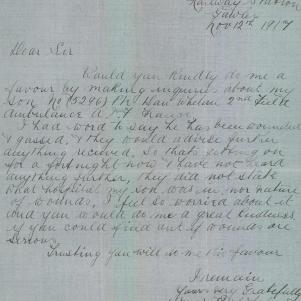 Railway Station
Galway
Nov 12th 1917
Dear Sir
Could you kindly do me a
favour by making inquires about my
Son No (5246) Pte Dan Whelan 2nd Field
Ambulance A.I.F. France.
I had word to say he has been wounded
& gassed, & they would advise further
anything recieved, So thats going on
for a fortnight now & have not heard
anything further, they did not state
what hospital my son was in, nor nature
of wounds, I feel so worried about it
and you would do me a great kindness
if you could find out if wounds are
serious
Trusting you will do me this favour
I remain
Yours very gratefully